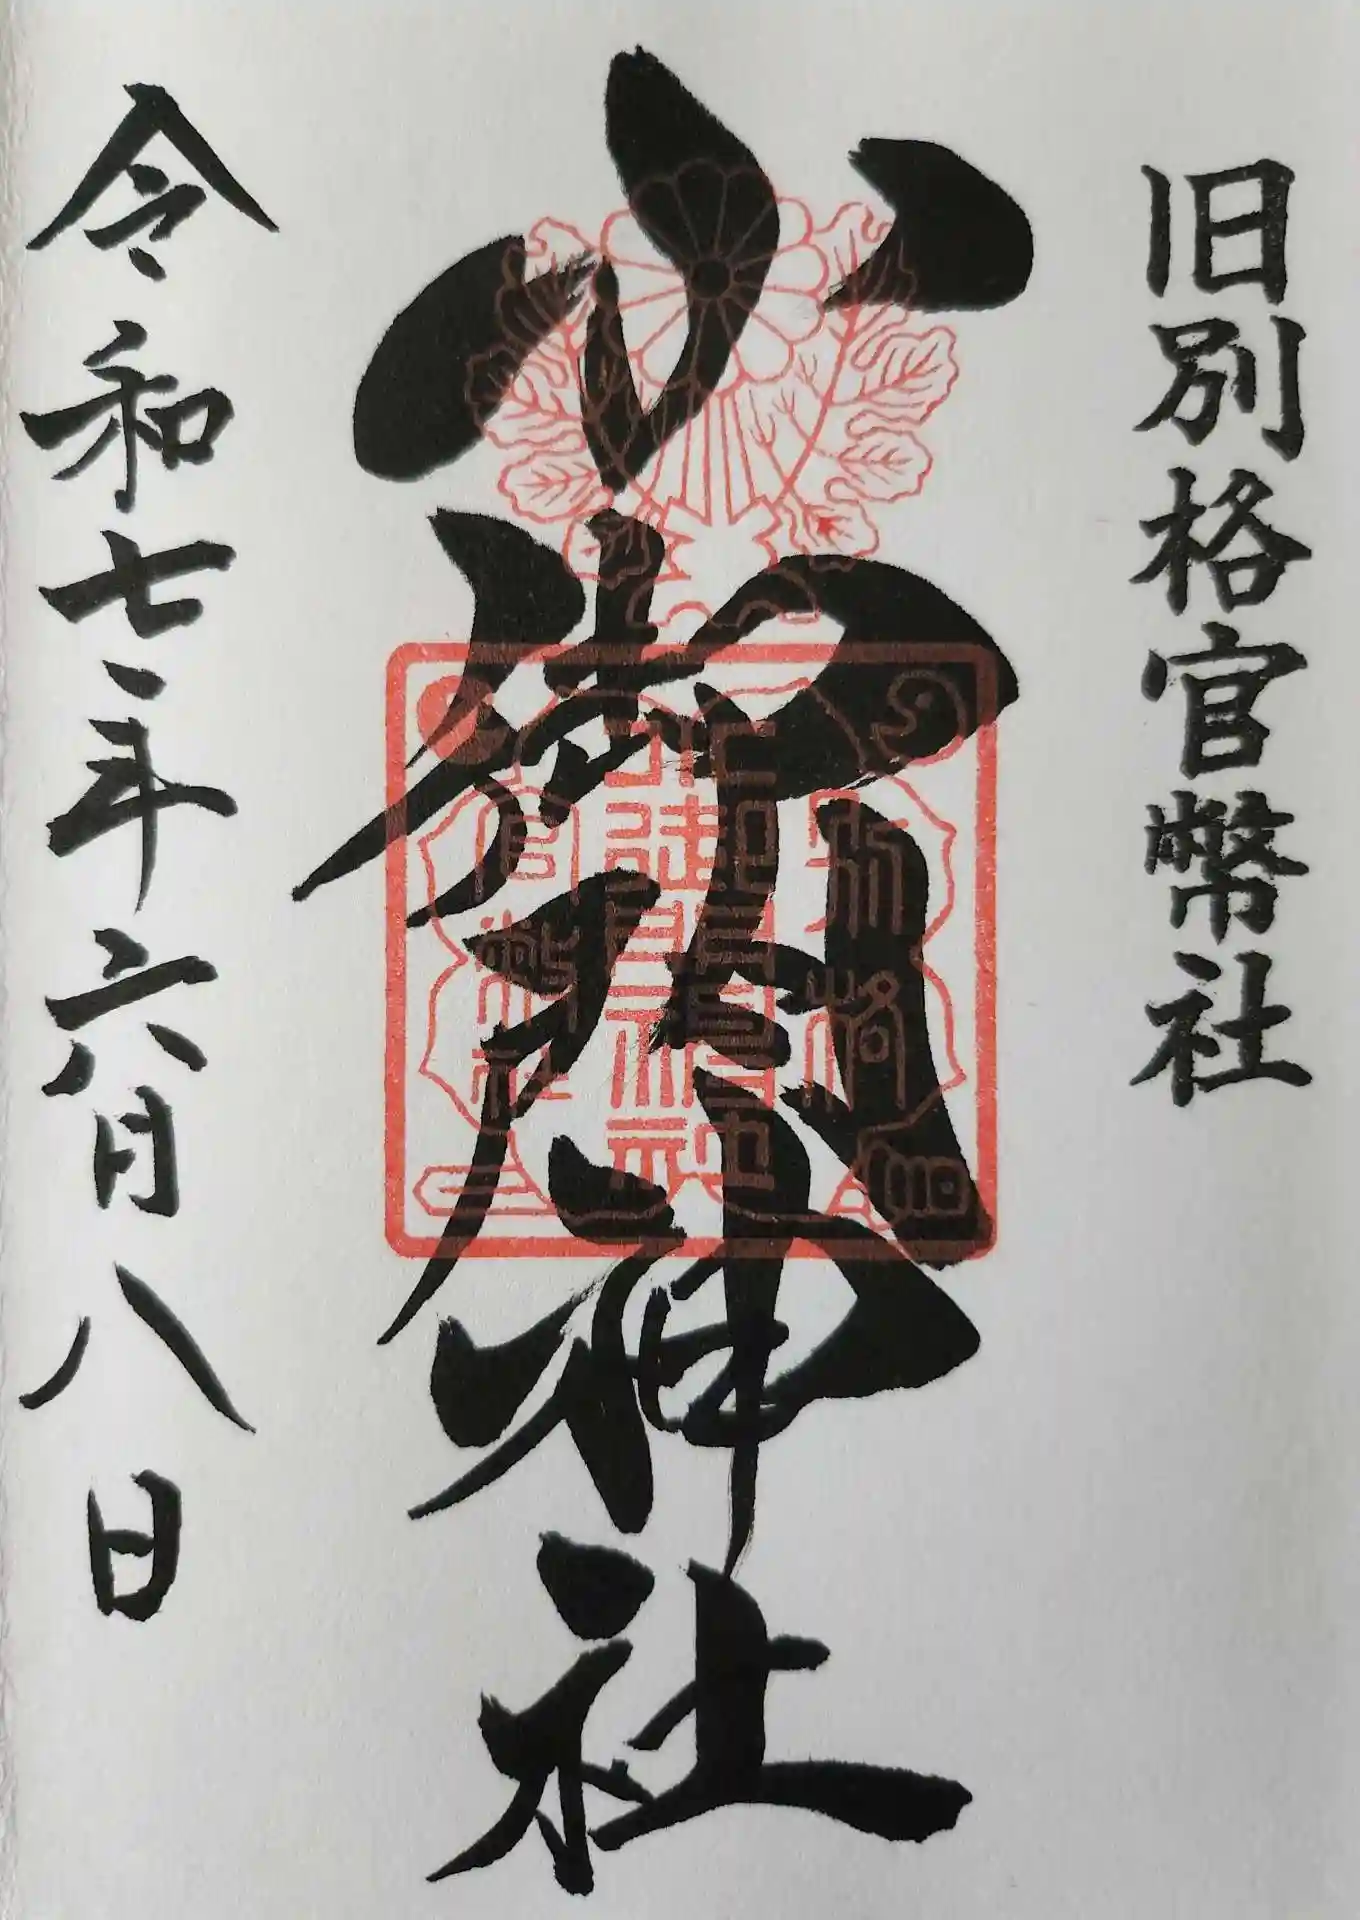 旧別格官幣社
小御門神社
令和七年六月八日
別格
小御門神社
官幣社